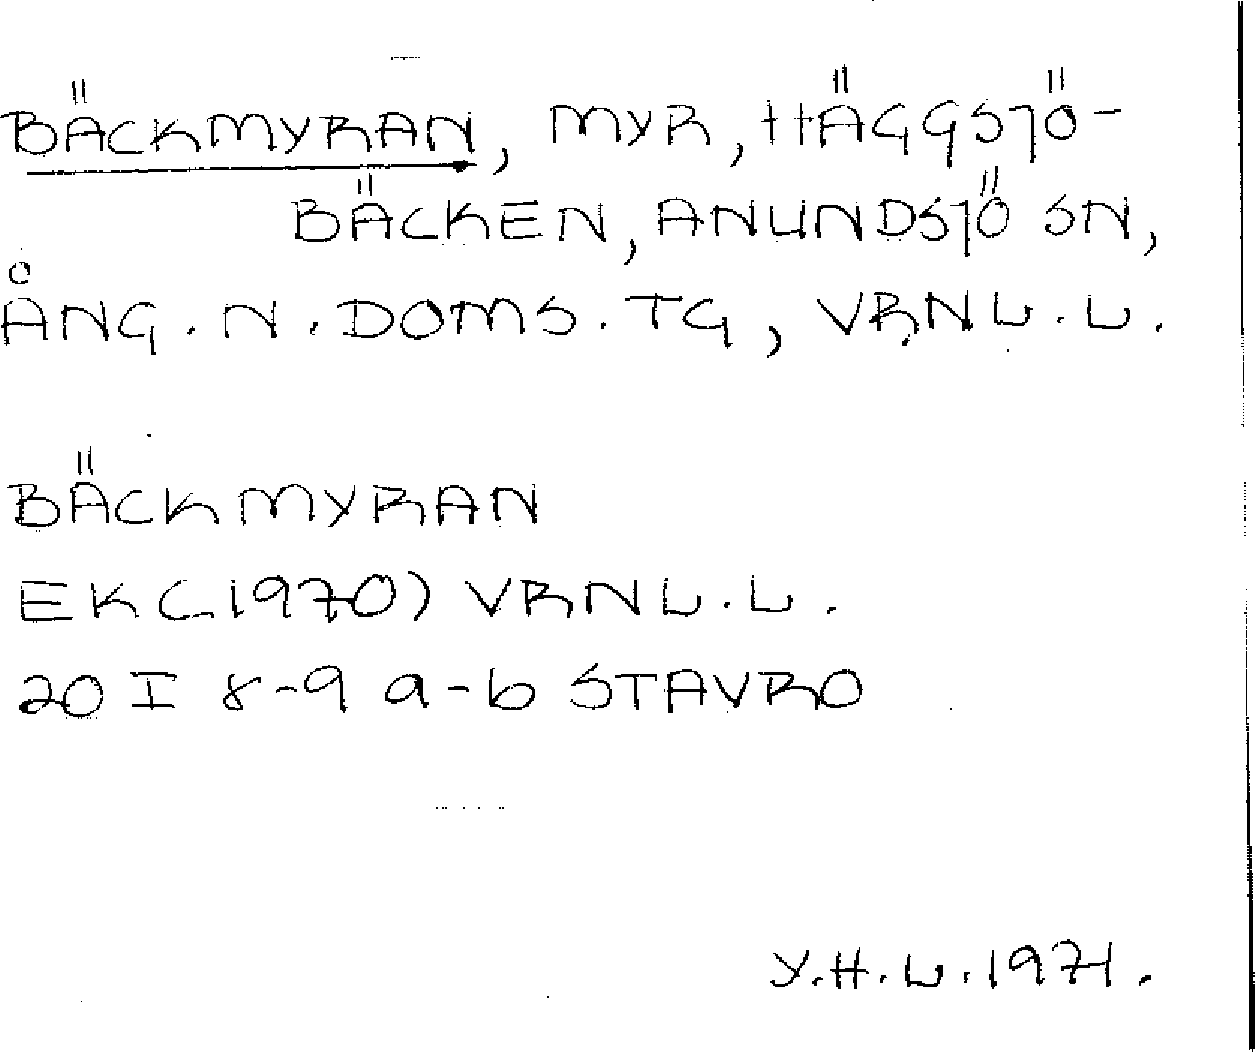 BÄCKMYRAN, MYR, HÄGGSJÖ-
BÄCKEN, ANUNDSJÖ SN,
ÅNG. N. DOMS. TG, VRNL.L.
BÄCKMYRAN
EK (1970) VRNL.L.
20 I 8-9 a-b STAVRO
Y.H.L. 1971.